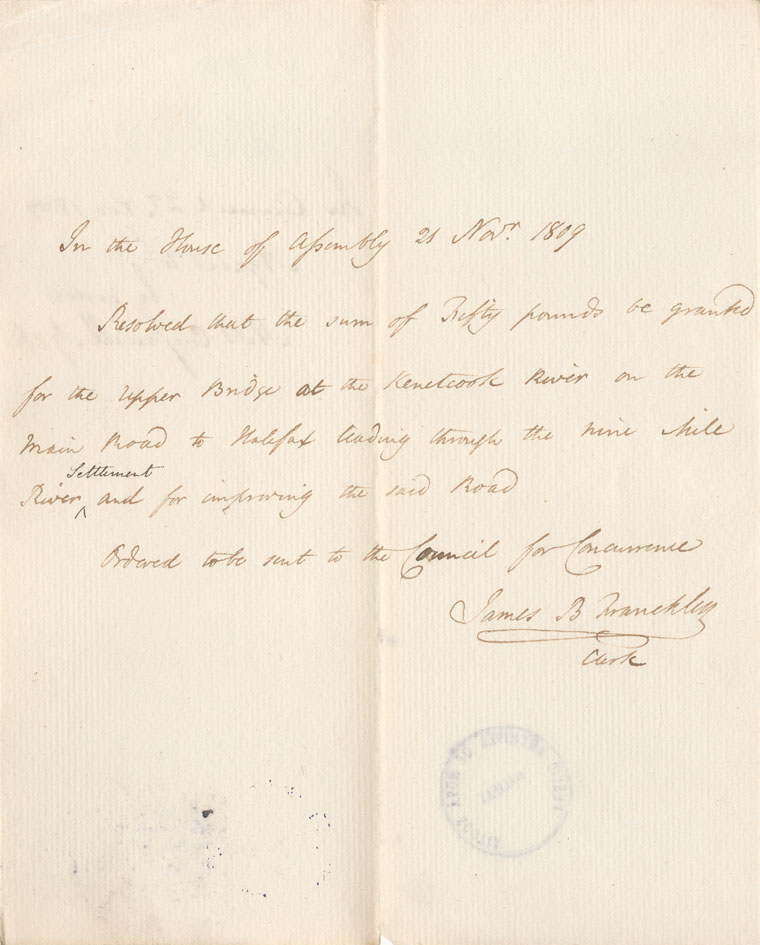 In the House of Assembly 21 Novr. 1809
Resolved that the sum of Fifty pounds be granted
for the upper Bridge at the Kenetcook River on the
main Road to Halifax leading through the nine Mile
Settlement
River ^ and for improving the said Road
Ordered to be sent to the Council for Concurrence
James B Franckley
Clerk